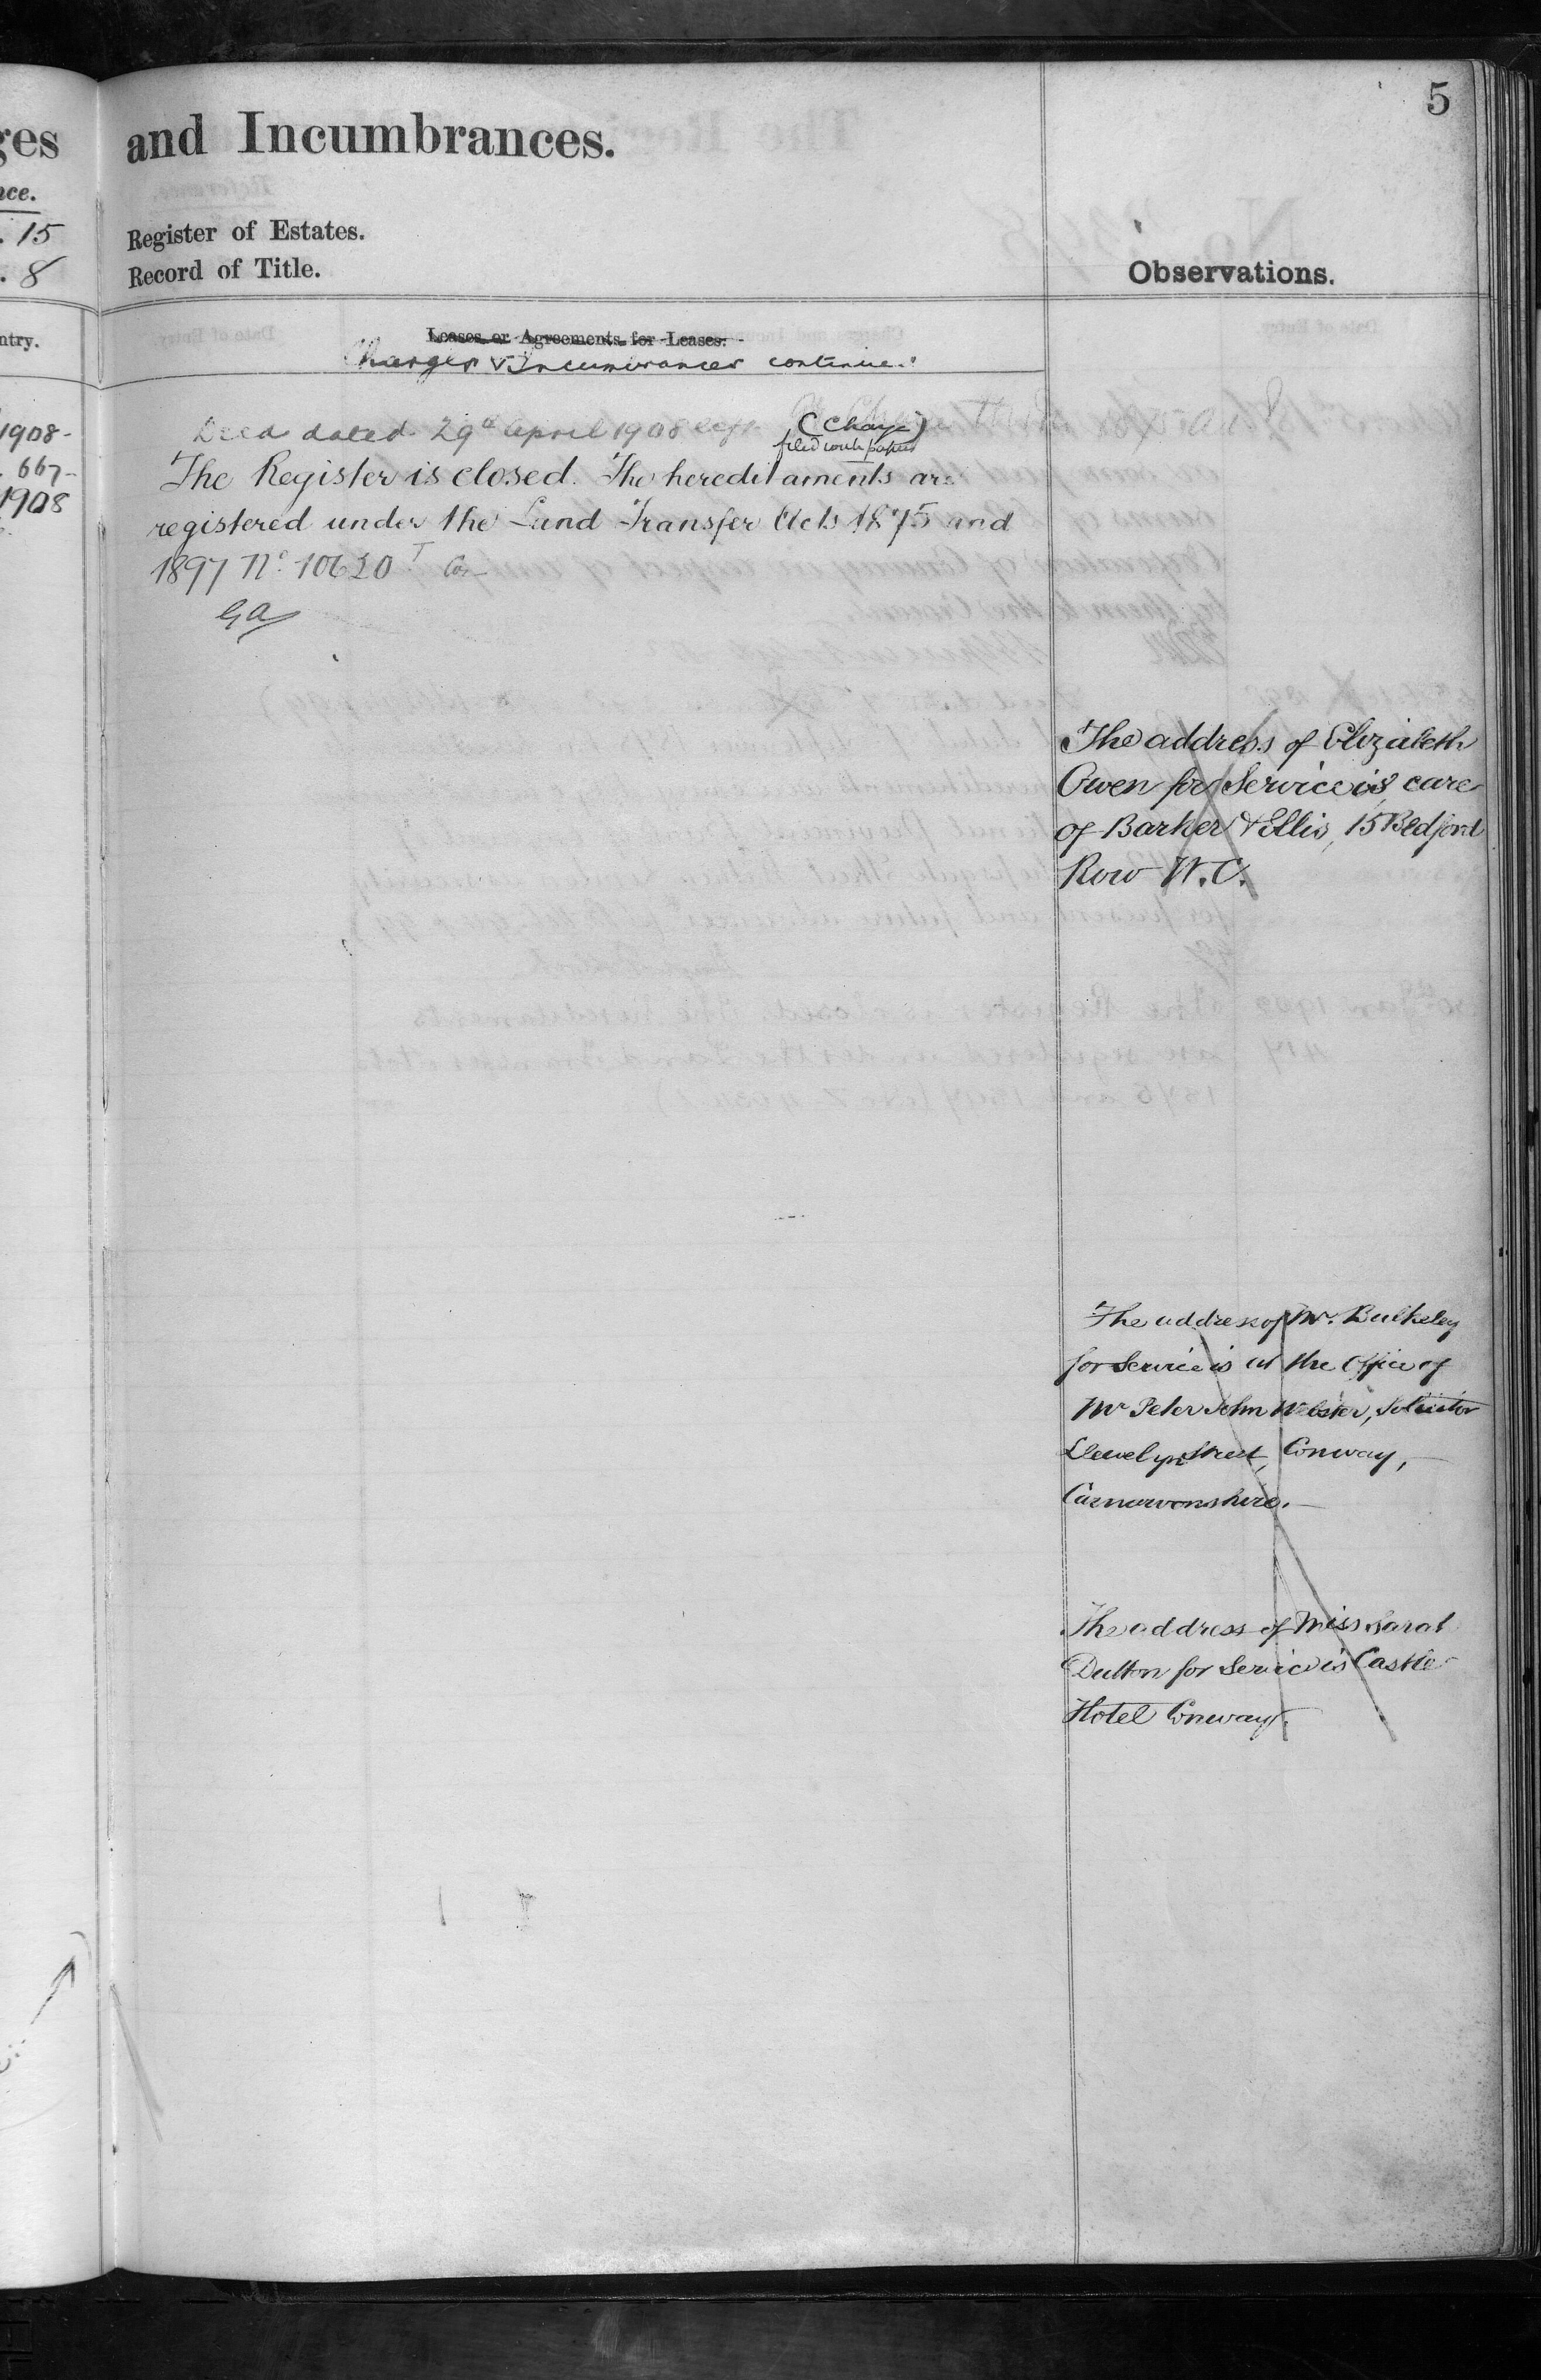 ges
nce.
. 15
. 8
ntry.
1908-
. 667-
1908
and Incumbrances.
Register of Estates.
Record of Title.
5
Observations.
Leases or Agreements for Leases.
Charges & Incumbrances continued
Deed dated 29th April 1908
(Charge)
filed with papers
The Register is closed. The hereditaments are
registered under the Land Transfer Acts 1875 and
1897 No. 10620
The address of Elizabeth
Owen for Service is care
of Barker & Ellis, 15 Bedford
Row W.C.
The address of Mr. Bulkeley
for Service is at the Office of
Mr Peter John Webster, Solicitor
Llewelyn Street, Conway,
Carnarvonshire.
The address of Miss Sarah
Dutton for Service is Castle
Hotel Conway.